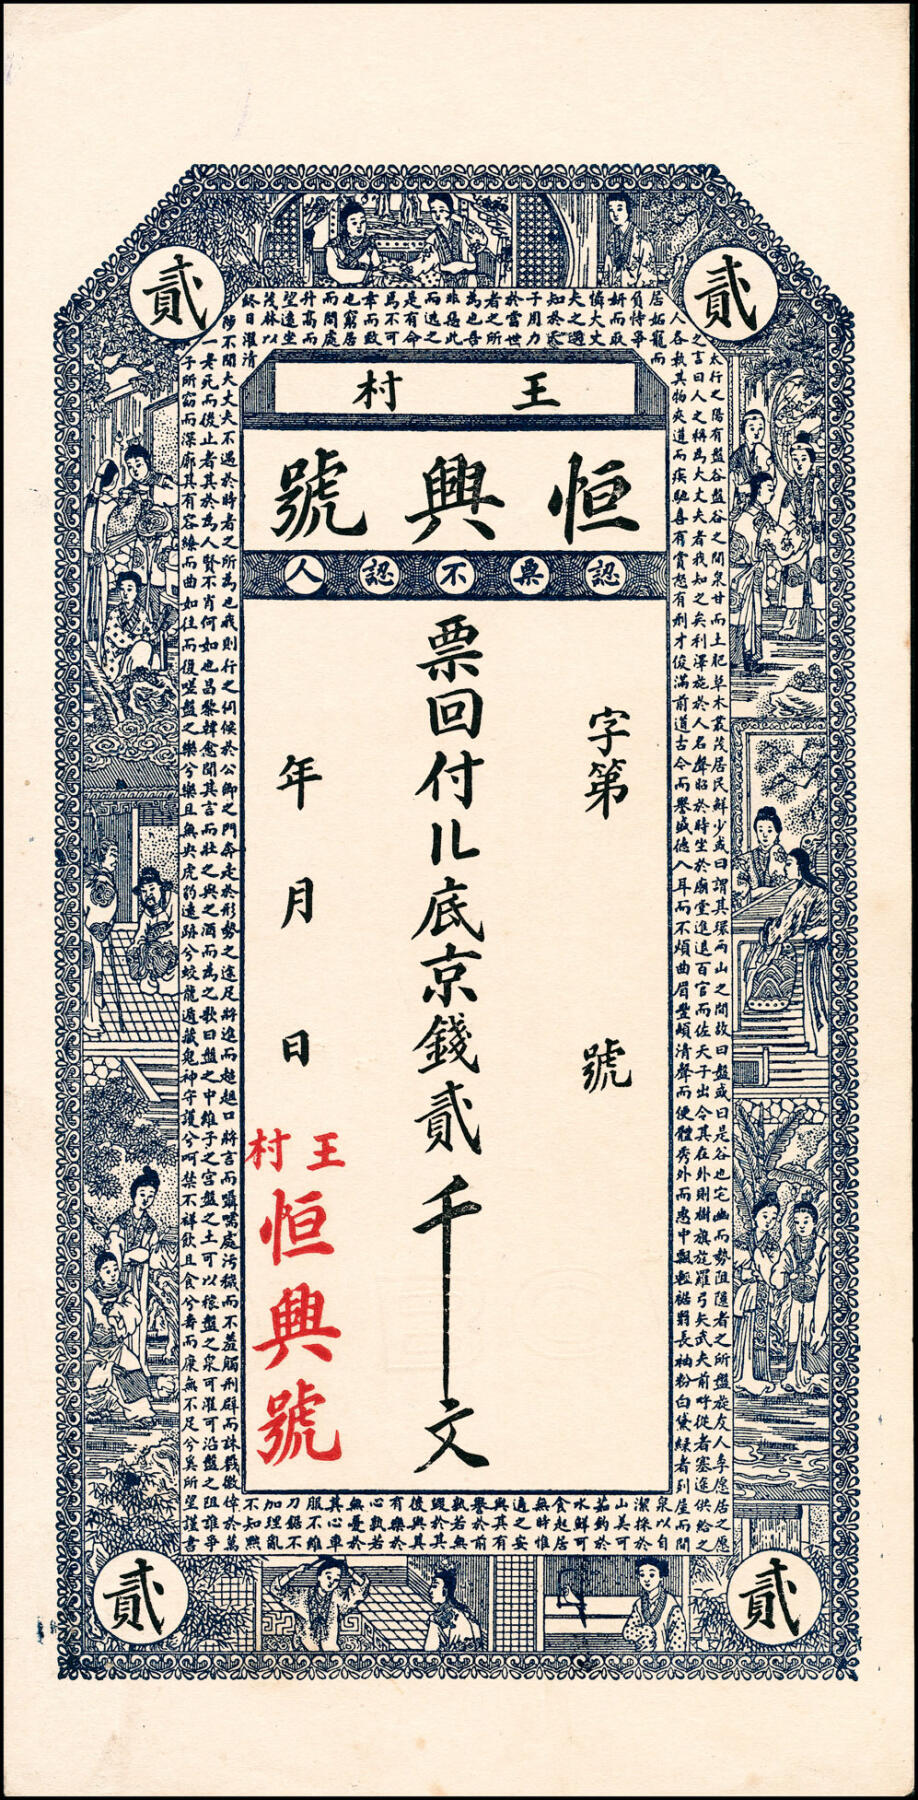 貳
貳
王村
恒興號
認票不認人
字第 號
票回付儿底京錢貳千文
年 月 日
王村
恒興號
貳
貳
太行之陽有盤谷盤谷之間泉甘而土肥草木叢茂居民鮮少或曰謂其環兩山之間故曰盤或曰是谷也宅幽而勢阻隱者之所盤旋友人李愿居之愿
之言曰人之稱為大丈夫者我知之矣利澤施於人名聲昭於時坐於廟堂進退百官而佐天子出令其在外則樹旗旄羅弓矢武夫前呵從者塞途供給之
人各執其物夾道而疾馳喜有賞怒有刑才俊滿前道古今而譽盛德入耳而不煩曲眉豐頰清聲而便體秀外而惠中飄輕裾翳長袖粉白黛綠者列屋而閒
居妬寵而
負恃爭
妍而取
憐大丈
夫之遇
知於天
子用力
於當世
者之所
為也吾
非惡此
而逃之
是有命
焉不可
幸而致
也窮居
而閒處
升高而
望遠坐
茂林以
終日濯清
泉以自
潔採於
山美可
茹釣於
水鮮可
食起居
無時惟
適之安
與其有
譽於前
孰若無
毀於其
後與其
有樂於
心孰若
無憂於
其心車
服不維
刀鋸不
加理亂
不知黜
陟不聞大丈夫不遇於時者之所為也我則行之伺候於公卿之門奔走於形勢之途足將進而趑趄口將言而囁嚅處污穢而不羞觸刑辟而誅戮徼倖於萬
一老死而後止者其於為人賢不肖何如也昌黎韓愈聞其言而壯之與之酒而為之歌曰盤之中維子之宮盤之土可以稼盤之泉可濯可沿盤之阻誰爭
子所窈而深廓其有容繚而曲如往而復嗟盤之樂兮樂且無央虎豹遠跡兮蛟龍遁藏鬼神守護兮呵禁不祥飲且食兮壽而康無不足兮奚所望謹書